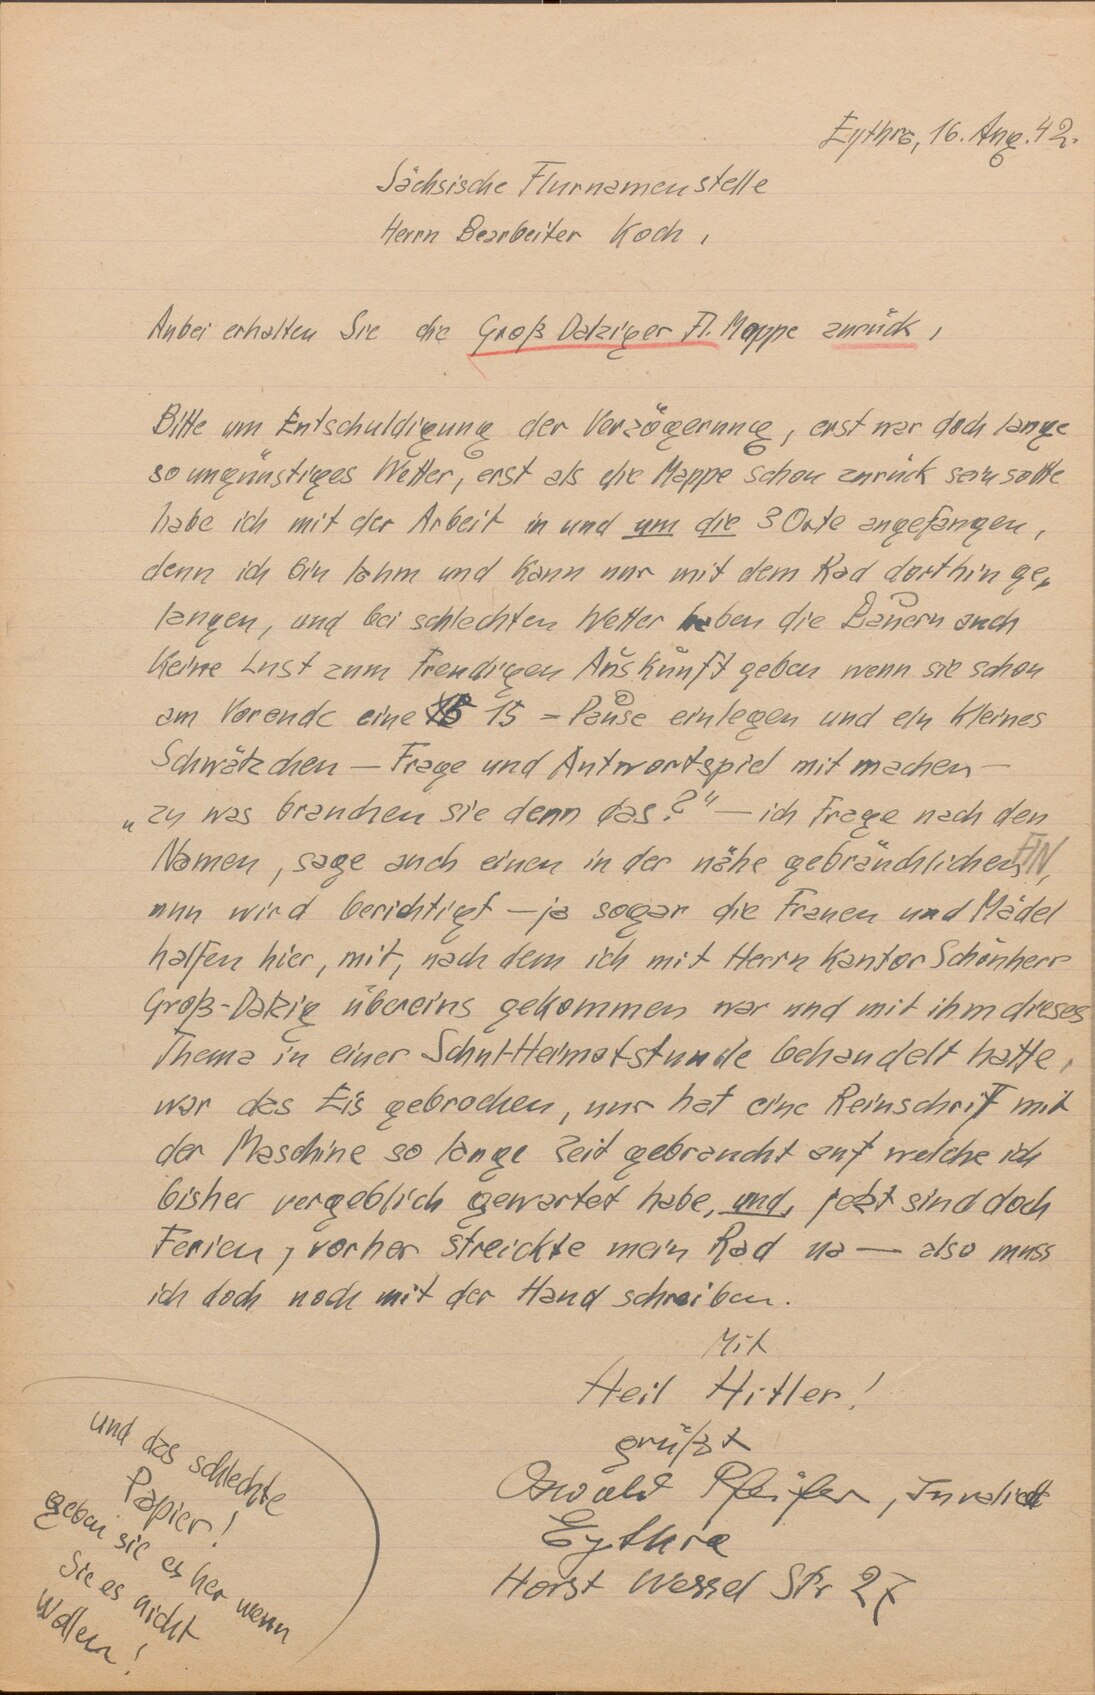 Eythra, 16. Aug. 42.
Sächsische Flurnamenstelle
Herrn Bearbeiter Koch,
Anbei erhalten Sie die Groß Dalziger Fl. Mappe zurück,
Bitte um Entschuldigung der Verzögerung, erst war doch lange
so ungünstiges Wetter, erst als die Mappe schon zurück sein sollte
habe ich mit der Arbeit in und um die 3 Orte angefangen,
denn ich bin lahm und kann nur mit dem Rad dorthin ge-
langen, und bei schlechten Wetter haben die Bauern auch
keine Lust zum Freudigen Auskunft geben wenn sie schon
am Vorende eine 15 = Pause einlegen und ein kleines
Schwätzchen — Frage und Antwortspiel mit machen —
„zu was brauchen sie denn das?“ — ich Frage nach den
Namen, sage auch einen in der nähe gebräuchlichen FN,
nun wird berichtigt — ja sogar die Frauen und Mädel
halfen hier, mit, nach dem ich mit Herrn Kantor Schönherr
Groß-Dalzig übereins gekommen war und mit ihm dieses
Thema in einer Schul-Heimatstunde behandelt hatte,
war das Eis gebrochen, nur hat eine Reinschrift mit
der Maschine so lange Zeit gebraucht auf welche ich
bisher vergeblich gewartet habe, und, jetzt sind doch
Ferien, vorher streickte mein Rad na — also muss
ich doch noch mit der Hand schreiben.
Mit
Heil Hitler!
grüßt
Oswald Pfeifer, Invalid
Eythra
Horst Wessel Str 27
und das schlechte
Papier!
geben sie es her wenn
Sie es nicht
Wollen!